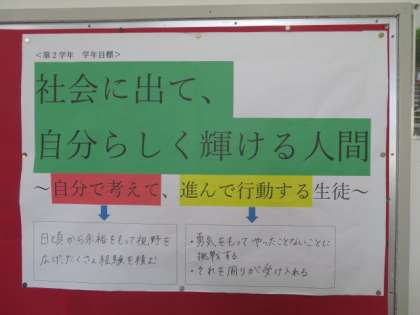 ＜第２学年　学年目標＞
社会に出て、
自分らしく輝ける人間
～自分で考えて、進んで行動する生徒～
日頃から余裕をもって視野を
広げ、たくさん経験を積む
・勇気をもってやったことないことに
挑戦する
・それを周りが受け入れる